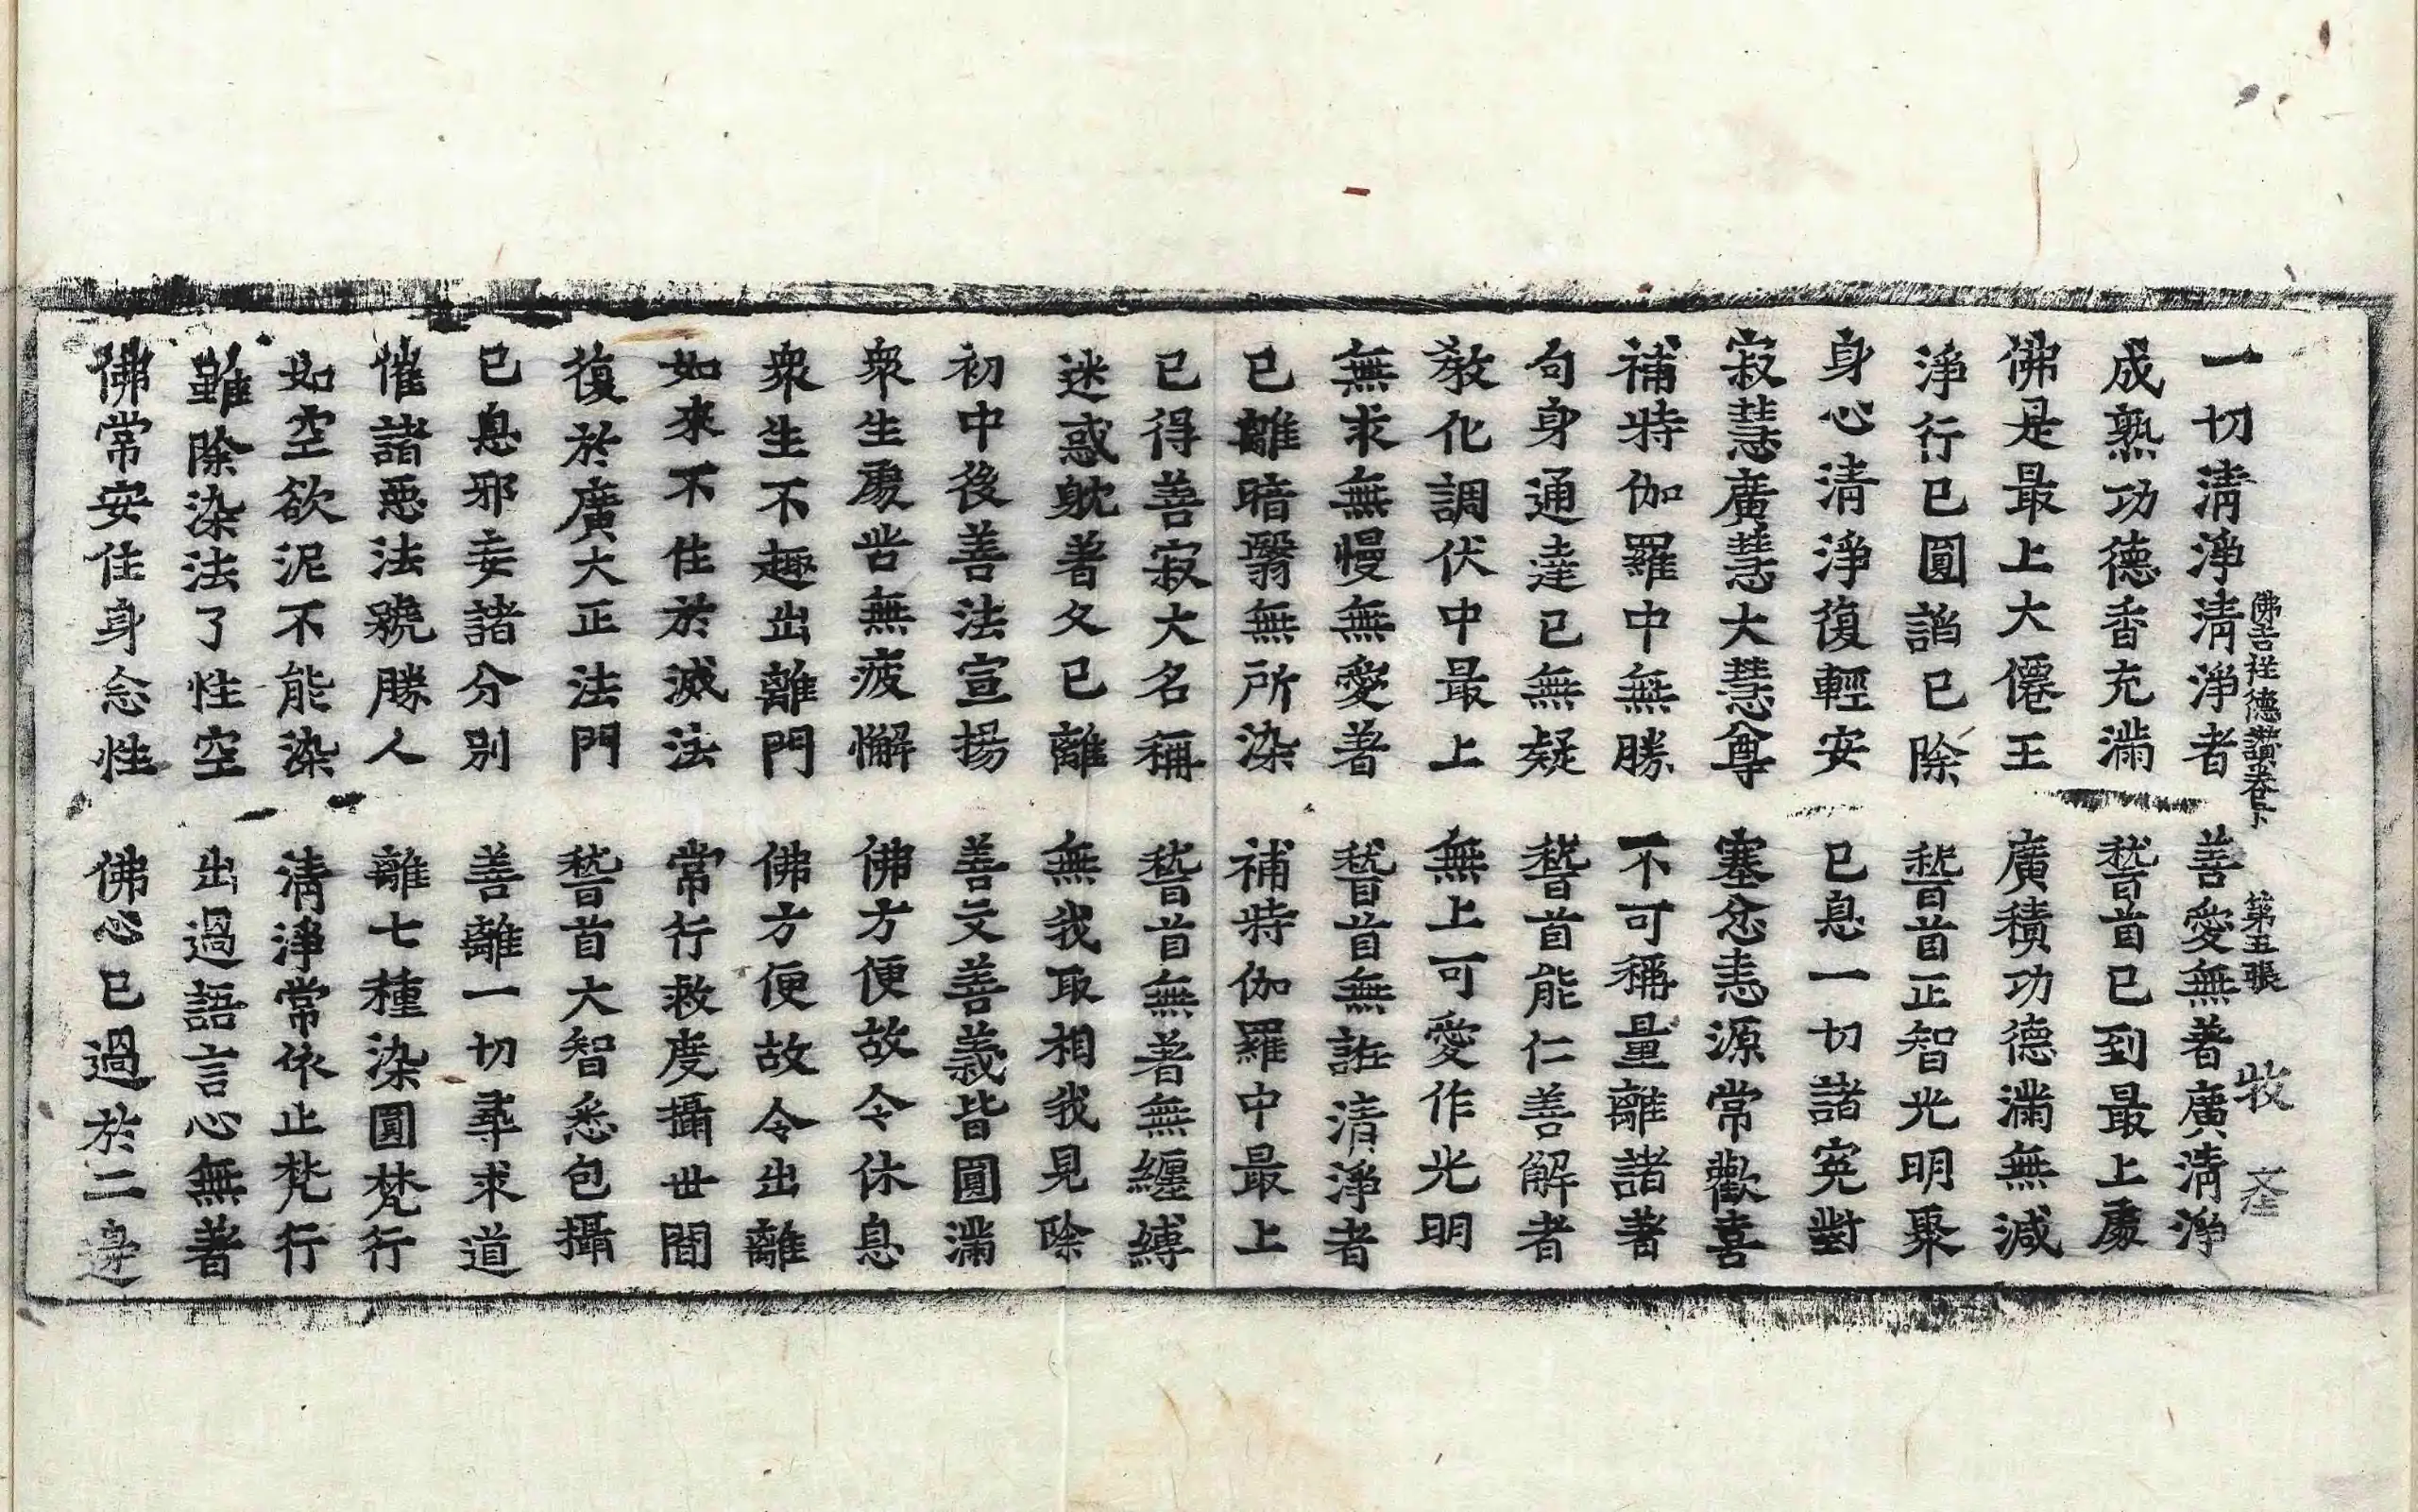 佛吉祥德讃卷下 第五張 牧
一切淸淨淸淨者 善愛無著廣淸淨
成熟功德香充滿 嵆首已到最上處
佛是最上大僊王 廣積功德滿無減
淨行已圓謟已除 嵆首正智光明聚
身心淸淨復輕安 已息一切諸寃對
寂慧廣慧大慧尊 塞忿恚源常歡喜
補特伽羅中無勝 不可稱量離諸著
句身通達已無疑 嵆首能仁善解者
教化調伏中最上 無上可愛作光明
無求無慢無愛著 嵆首無誑淸淨者
已離暗翳無所染 補特伽羅中最上
已得善寂大名稱 嵆首無著無纏縛
迷惑躭著久已離 無我取相我見除
初中後善法宣揚 善文善義皆圓滿
衆生處世無疲懈 佛方便故令休息
衆生不趣出離門 佛方便故令出離
如來不住於滅法 常行救度攝世間
復於廣大正法門 嵆首大智悉包攝
已息邪妄諸分別 善離一切尋求道
摧諸惡法號勝人 離七種染圓梵行
如空欲泥不能染 淸淨常依止梵行
雖除染法了性空 出過語言心無著
佛常安住身念性 佛心已過於二邊